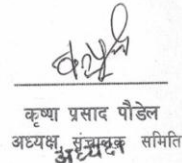 कृष्ण प्रसाद पौडेल
अध्यक्ष, सञ्चालक समिति
अध्यक्ष